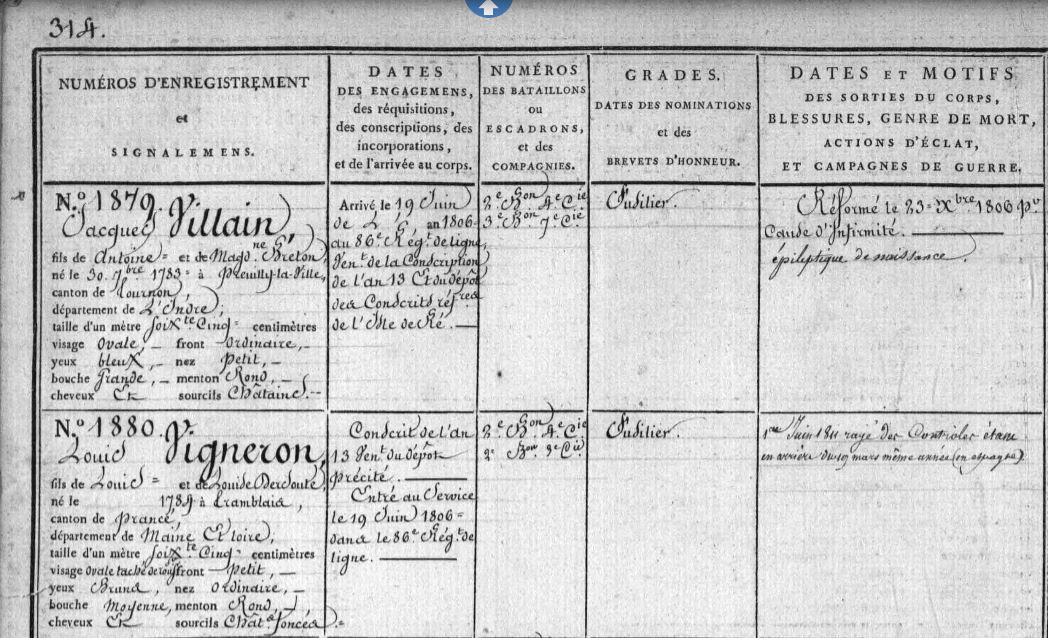 314.
NUMÉROS D'ENREGISTREMENT
et
SIGNALEMENS.
DATES
DES ENGAGEMENS,
des réquisitions,
des conscriptions, des
incorporations,
et de l'arrivée au corps.
NUMÉROS
DES BATAILLONS
ou
ESCADRONS,
et des
COMPAGNIES.
GRADES.
DATES DES NOMINATIONS
et des
BREVETS D'HONNEUR.
DATES ET MOTIFS
DES SORTIES DU CORPS,
BLESSURES, GENRE DE MORT,
ACTIONS D'ÉCLAT,
ET CAMPAGNES DE GUERRE.
N.° 1879.
Jacques Villain,
fils de Antoine = et de Magd.ne Breton,
né le 30. 7bre 1783 = à Preuilly-la-Ville,
canton de Tournon,
département de L'Indre,
taille d'un mètre Soixte Cinq = centimètres
visage Ovale, front Ordinaire,
yeux bleux, nez Petit,
bouche Grande, menton Rond,
cheveux Et sourcils Châtains.
Arrivé le 19 Juin
de an 1806
au 86e Régt de ligne,
Vent de la Conscription
de l'an 13 Et du dépôt
des Conscrits
de l'Isle de Ré.
2e Bon 4e Cie
3e Bon 7e Cie
Fusilier.
Réformé le 23 = Xbre 1806 pr
Cause d'Infirmité.
épileptique de naissance.
N.° 1880.
Louis Vigneron,
fils de Louis = et de Louise
né le 1784 à
canton de
département de Maine Et Loire,
taille d'un mètre Soixte Cinq = centimètres
visage Ovale taché de front Petit,
yeux Bruns, nez Ordinaire,
bouche Moyenne, menton Rond,
cheveux Et sourcils Chât.s foncés.
Conscrit de l'an
13 Vent du dépôt
précité.
Entré au Service
le 19 Juin 1806 =
dans le 86e Régt de
ligne.
2e Bon 4e Cie
2e Bon 3e Cie
Fusilier.
1er Juin 1811 rayé des Controles étant
en arriere du 19 mars même année (en espagne)